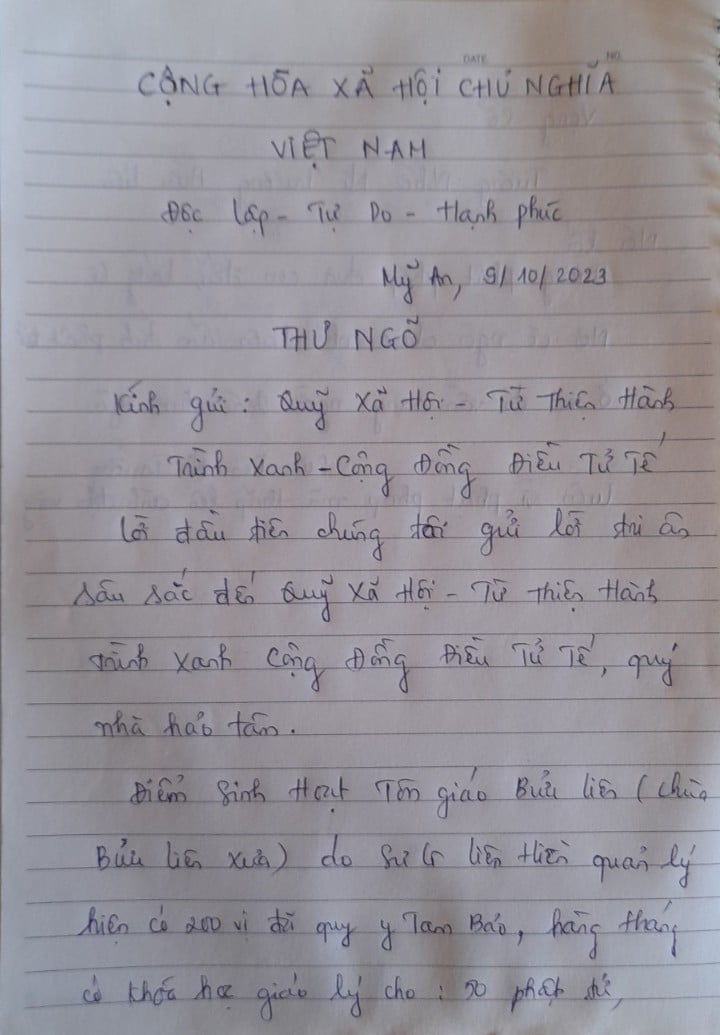 DATE NO.
CỘNG HÒA XÃ HỘI CHỦ NGHĨA
VIỆT NAM
Độc lập - Tự Do - Hạnh phúc
Mỹ An, 9/10/2023
THƯ NGỎ
Kính gửi: Quỹ Xã Hội - Từ Thiện Hành
Trình Xanh - Cộng Đồng Điều Tử Tế
Lời đầu tiên chúng tôi gửi lời tri ân
sâu sắc đến Quỹ Xã Hội - Từ Thiện Hành
trình Xanh Cộng Đồng Điều Tử Tế, quý
nhà hảo tâm.
Điểm Sinh Hoạt Tôn giáo Bửu Liên (chùa
Bửu Liên xưa) do Sư Liên Hiền quản lý
hiện có 200 vị đã quy y Tam Bảo, hằng tháng
có khóa học giáo lý cho: 50 phật tử,